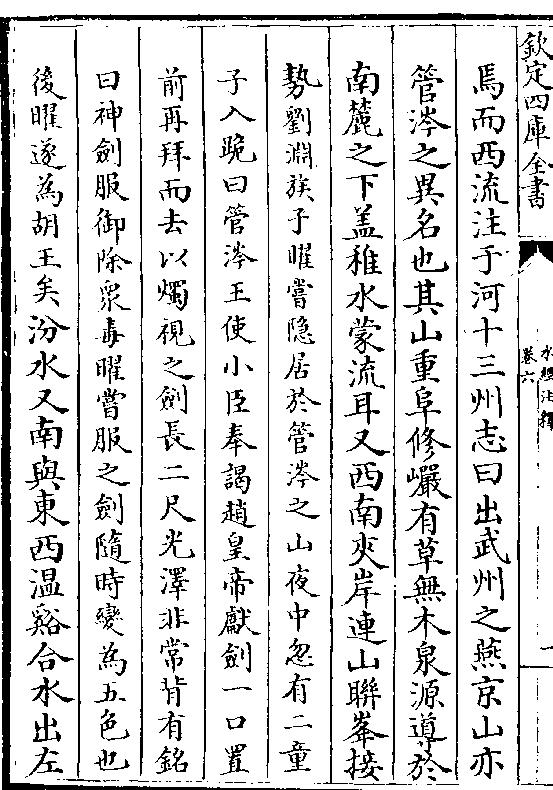 欽定四庫全書
水經注釋
卷六
焉而西流注于河十三州志曰出武州之燕京山亦
管涔之異名也其山重阜修巖有草無木泉源導於
南麓之下盖稚水蒙流耳又西南夾岸連山聯峯接
勢劉淵族子曜嘗隐居於管涔之山夜中忽有二童
子入跪曰管涔王使小臣奉謁趙皇帝獻劍一口置
前再拜而去以燭視之劍長二尺光澤非常背有銘
曰神劍服御除衆毒曜嘗服之劍隨時變為五色也
後曜遂為胡王矣汾水又南與東西溫谿合水出左